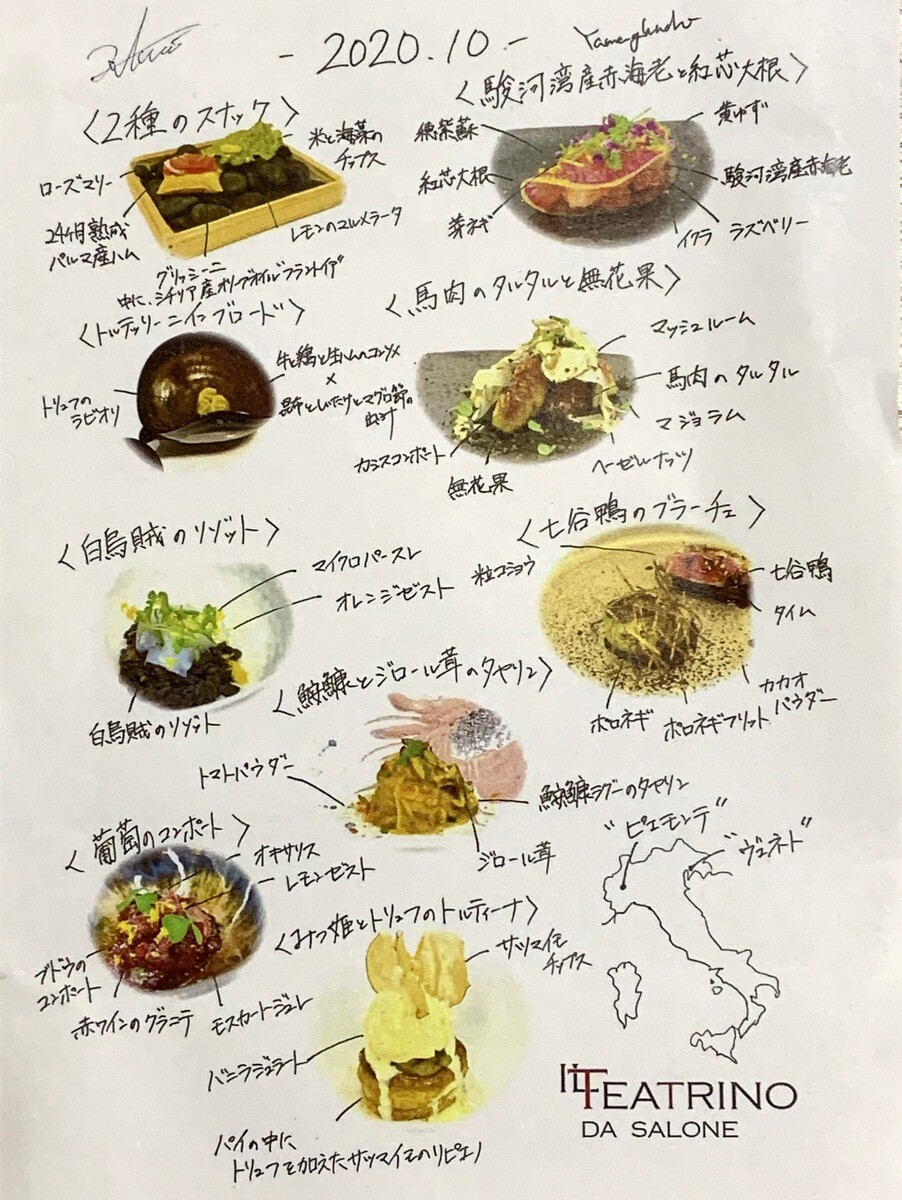 - 2020.10 -
〈2種のスナック〉
米と海藻のチップス
ローズマリー
24ヶ月熟成
パルマ産ハム
レモンのマルメラータ
グリッシーニ
中に、シチリア産オリーブオイル"フラントイア"
〈駿河湾産赤海老と紅芯大根〉
穂紫蘇
黄ゆず
紅芯大根
駿河湾産赤海老
芽ネギ
イクラ
ラズベリー
〈トルテッリーニインブロード〉
牛と鶏と生ハムのコンソメ
×
昆布としいたけとマグロ節の
トリュフの
ラビオリ
〈馬肉のタルタルと無花果〉
マッシュルーム
馬肉のタルタル
マジョラム
ヘーゼルナッツ
カシスコンポート
無花果
〈白烏賊のリゾット〉
マイクロパースレ
オレンジゼスト
白烏賊のリゾット
〈七谷鴨のブラーチェ〉
粒コショウ
七谷鴨
タイム
カカオ
パウダー
ポロネギ
ポロネギフリット
〈鮟鱇とジロール茸のタヤリン〉
トマトパウダー
鮟鱇ラグーのタヤリン
ジロール茸
〈葡萄のコンポート〉
オキサリス
レモンゼスト
ブドウの
コンポート
赤ワインのグラニテ
モスカートジュレ
〈みつ姫とトリュフのトルティーナ〉
サツマイモ
チップス
バニラジェラート
パイの中に
トリュフを加えたサツマイモのリピエノ
"ピエモンテ"
"ヴェネト"
IL TEATRINO
DA SALONE